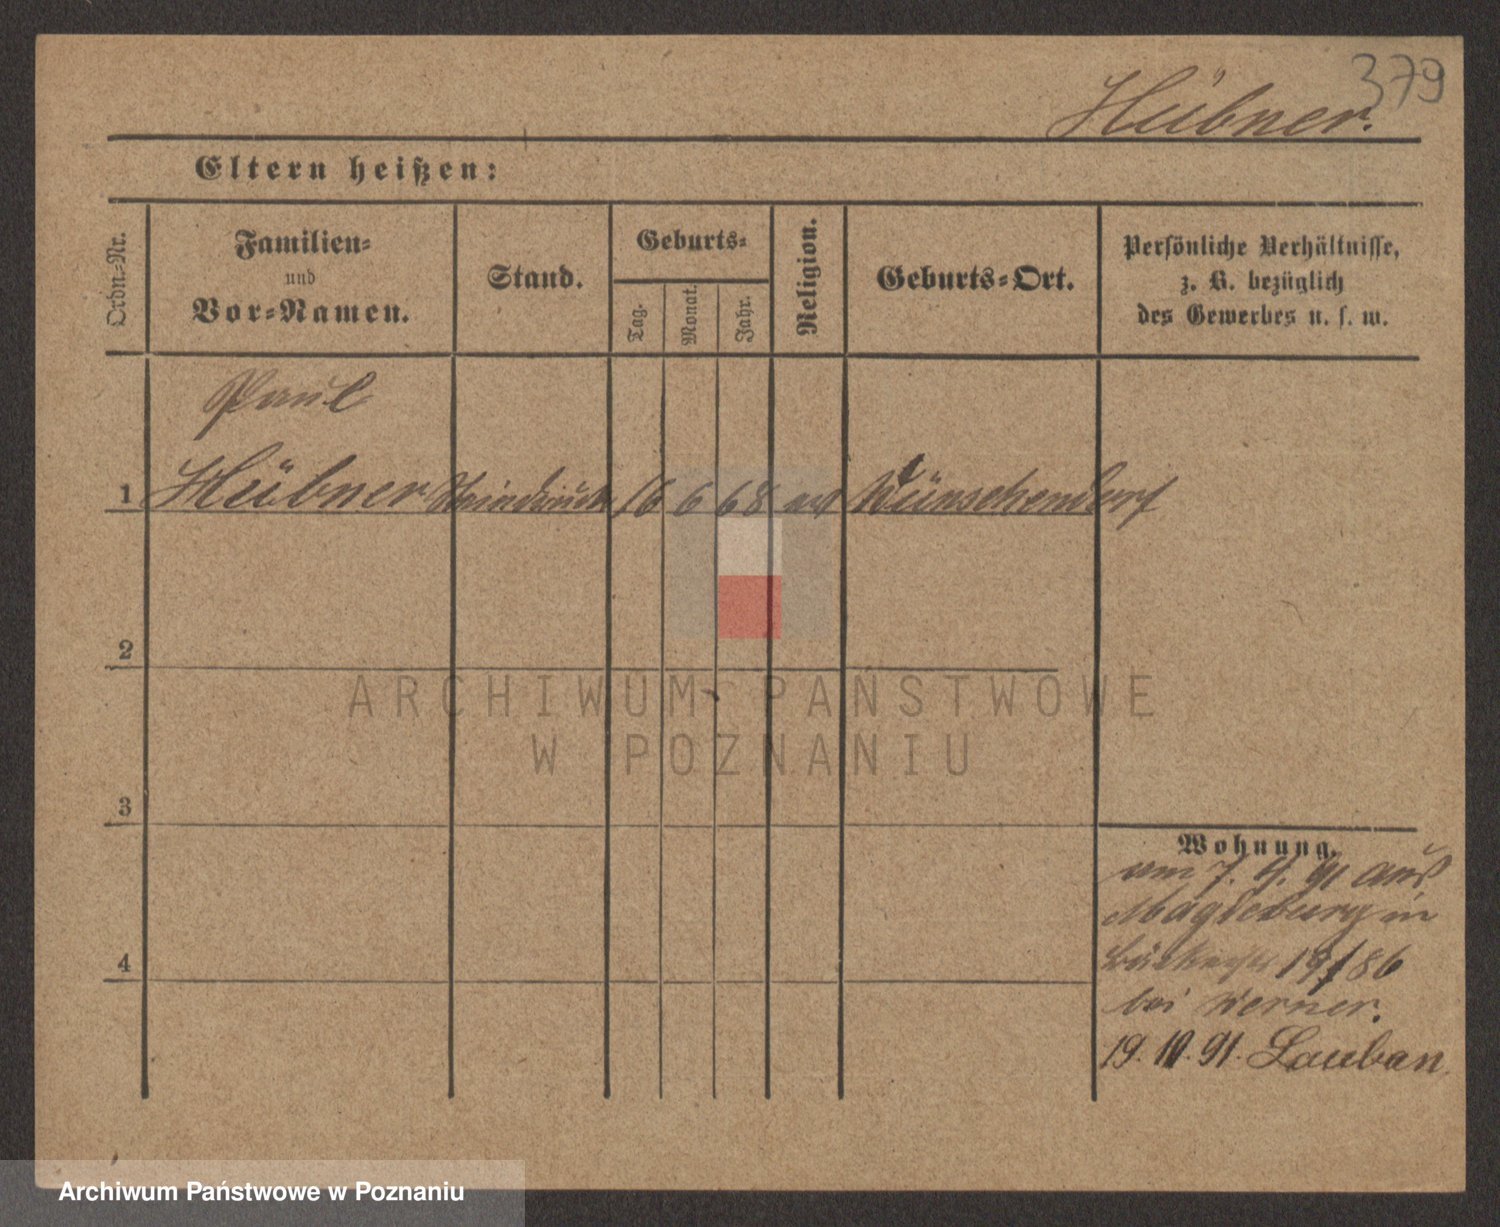 379
Hübner.
Eltern heißen:
Ordn=Nr.
Familien=
und
Vor=Namen.
Stand.
Geburts=
Tag.
Monat.
Jahr.
Religion.
Geburts=Ort.
Persönliche Verhältnisse,
z. B. bezüglich
des Gewerbes u. s. w.
Paul
1 Hübner 16 6 68 Wünschendorf
2
3
4
Wohnung.
am 7. 4. 91 aus
Magdeburg in
19/86
bei Werner.
19. 10. 91. Lauban
ARCHIWUM PAŃSTWOWE
W POZNANIU
Archiwum Państwowe w Poznaniu